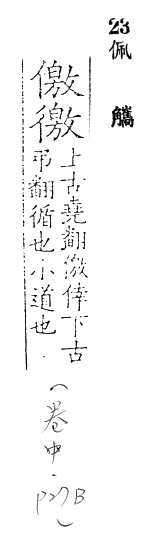 23
佩觿
儌徼
上古堯翻儌倖下古
弔翻循也小道也
(卷中.P27B)